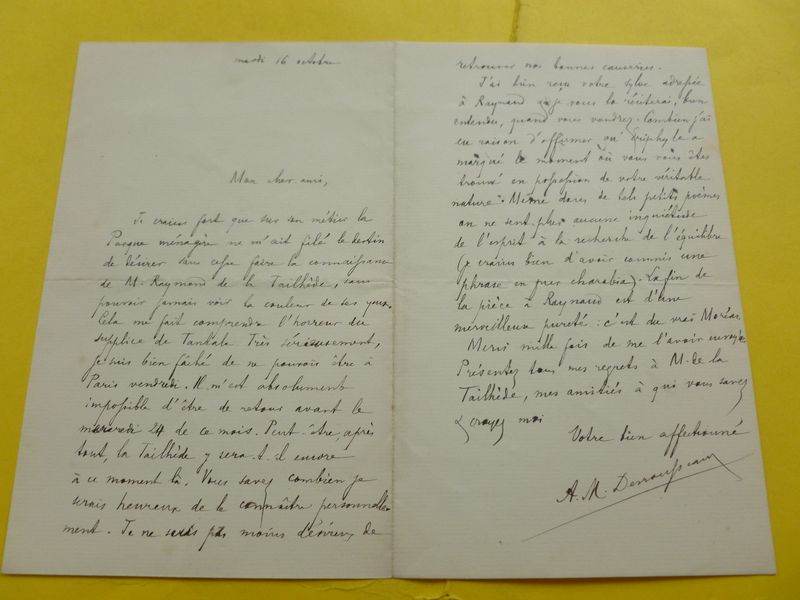 mardi 16 octobre
Mon cher ami,
Je crains fort que sur son métier la
Parque ménagère ne m'ait filé le destin
de désirer sans cesse faire la connaissance
de M. Raymond de la Tailhède, sans
pouvoir jamais voir la couleur de ses yeux.
Cela me fait comprendre l'horreur du
supplice de Tantale. Très sérieusement,
je suis bien fâché de ne pouvoir être à
Paris vendredi. Il m'est absolument
impossible d'être de retour avant le
mercredi 24 de ce mois. Peut-être, après
tout, la Tailhède y sera-t-il encore
à ce moment là. Vous savez combien je
serais heureux de le connaître personnelle-
ment. Je ne serais pas moins désireux de
retrouver nos bonnes causeries.
J'ai bien reçu votre sylve adressée
à Raynaud je vous la réciterai, bien
entendu, quand vous voudrez. Combien j'ai
eu raison d'affirmer qu'Eriphyle a
marqué le moment où vous vous êtes
trouvé en possession de votre véritable
nature. Même dans de tels petits poèmes
on ne sent plus aucune inquiétude
de l'esprit à la recherche de l'équilibre
(je crains bien d'avoir commis une
phrase en pur charabia). La fin de
la pièce à Raynaud est d'une
merveilleuse pureté : c'est du vrai Moréas.
Merci mille fois de me l'avoir envoyée.
Présentez tous mes regrets à M. de la
Tailhède, mes amitiés à qui vous savez
& croyez moi
Votre bien affectionné
A. M. Desrousseaux